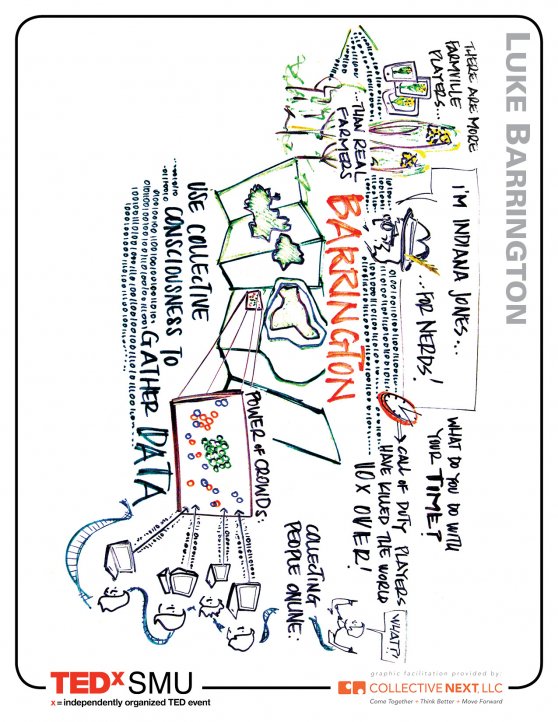 LUKE BARRINGTON
THERE ARE MORE
FARMVILLE
PLAYERS...
...THAN REAL
FARMERS
I'M INDIANA JONES...
...FOR NERDS!
BARRINGTON
WHAT DO YOU DO WITH
YOUR TIME?
CALL OF DUTY PLAYERS
HAVE KILLED THE WORLD
10X OVER!
WHAT?!
USE COLLECTIVE
CONSCIOUSNESS TO
GATHER DATA
POWER OF CROWDS:
COLLECTING
PEOPLE ONLINE:
TEDxSMU
x = independently organized TED event
graphic facilitation provided by:
COLLECTIVE NEXT, LLC
Come Together + Think Better + Move Forward